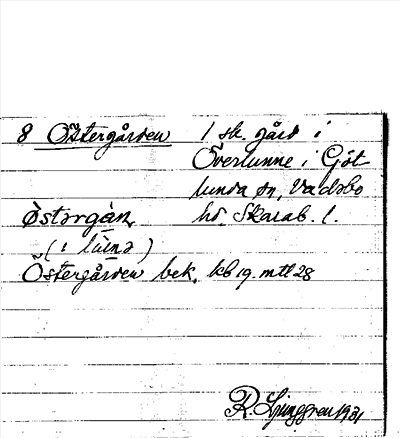 8 Östergården 1 sk. gård i
Överlunne i Göt-
lunda sn, Vadsbo
östərgàn, hd. Skarab. l.
(i lùnə)
Östergården bek. kb 19. mtl 28
R. Ljunggren 1931